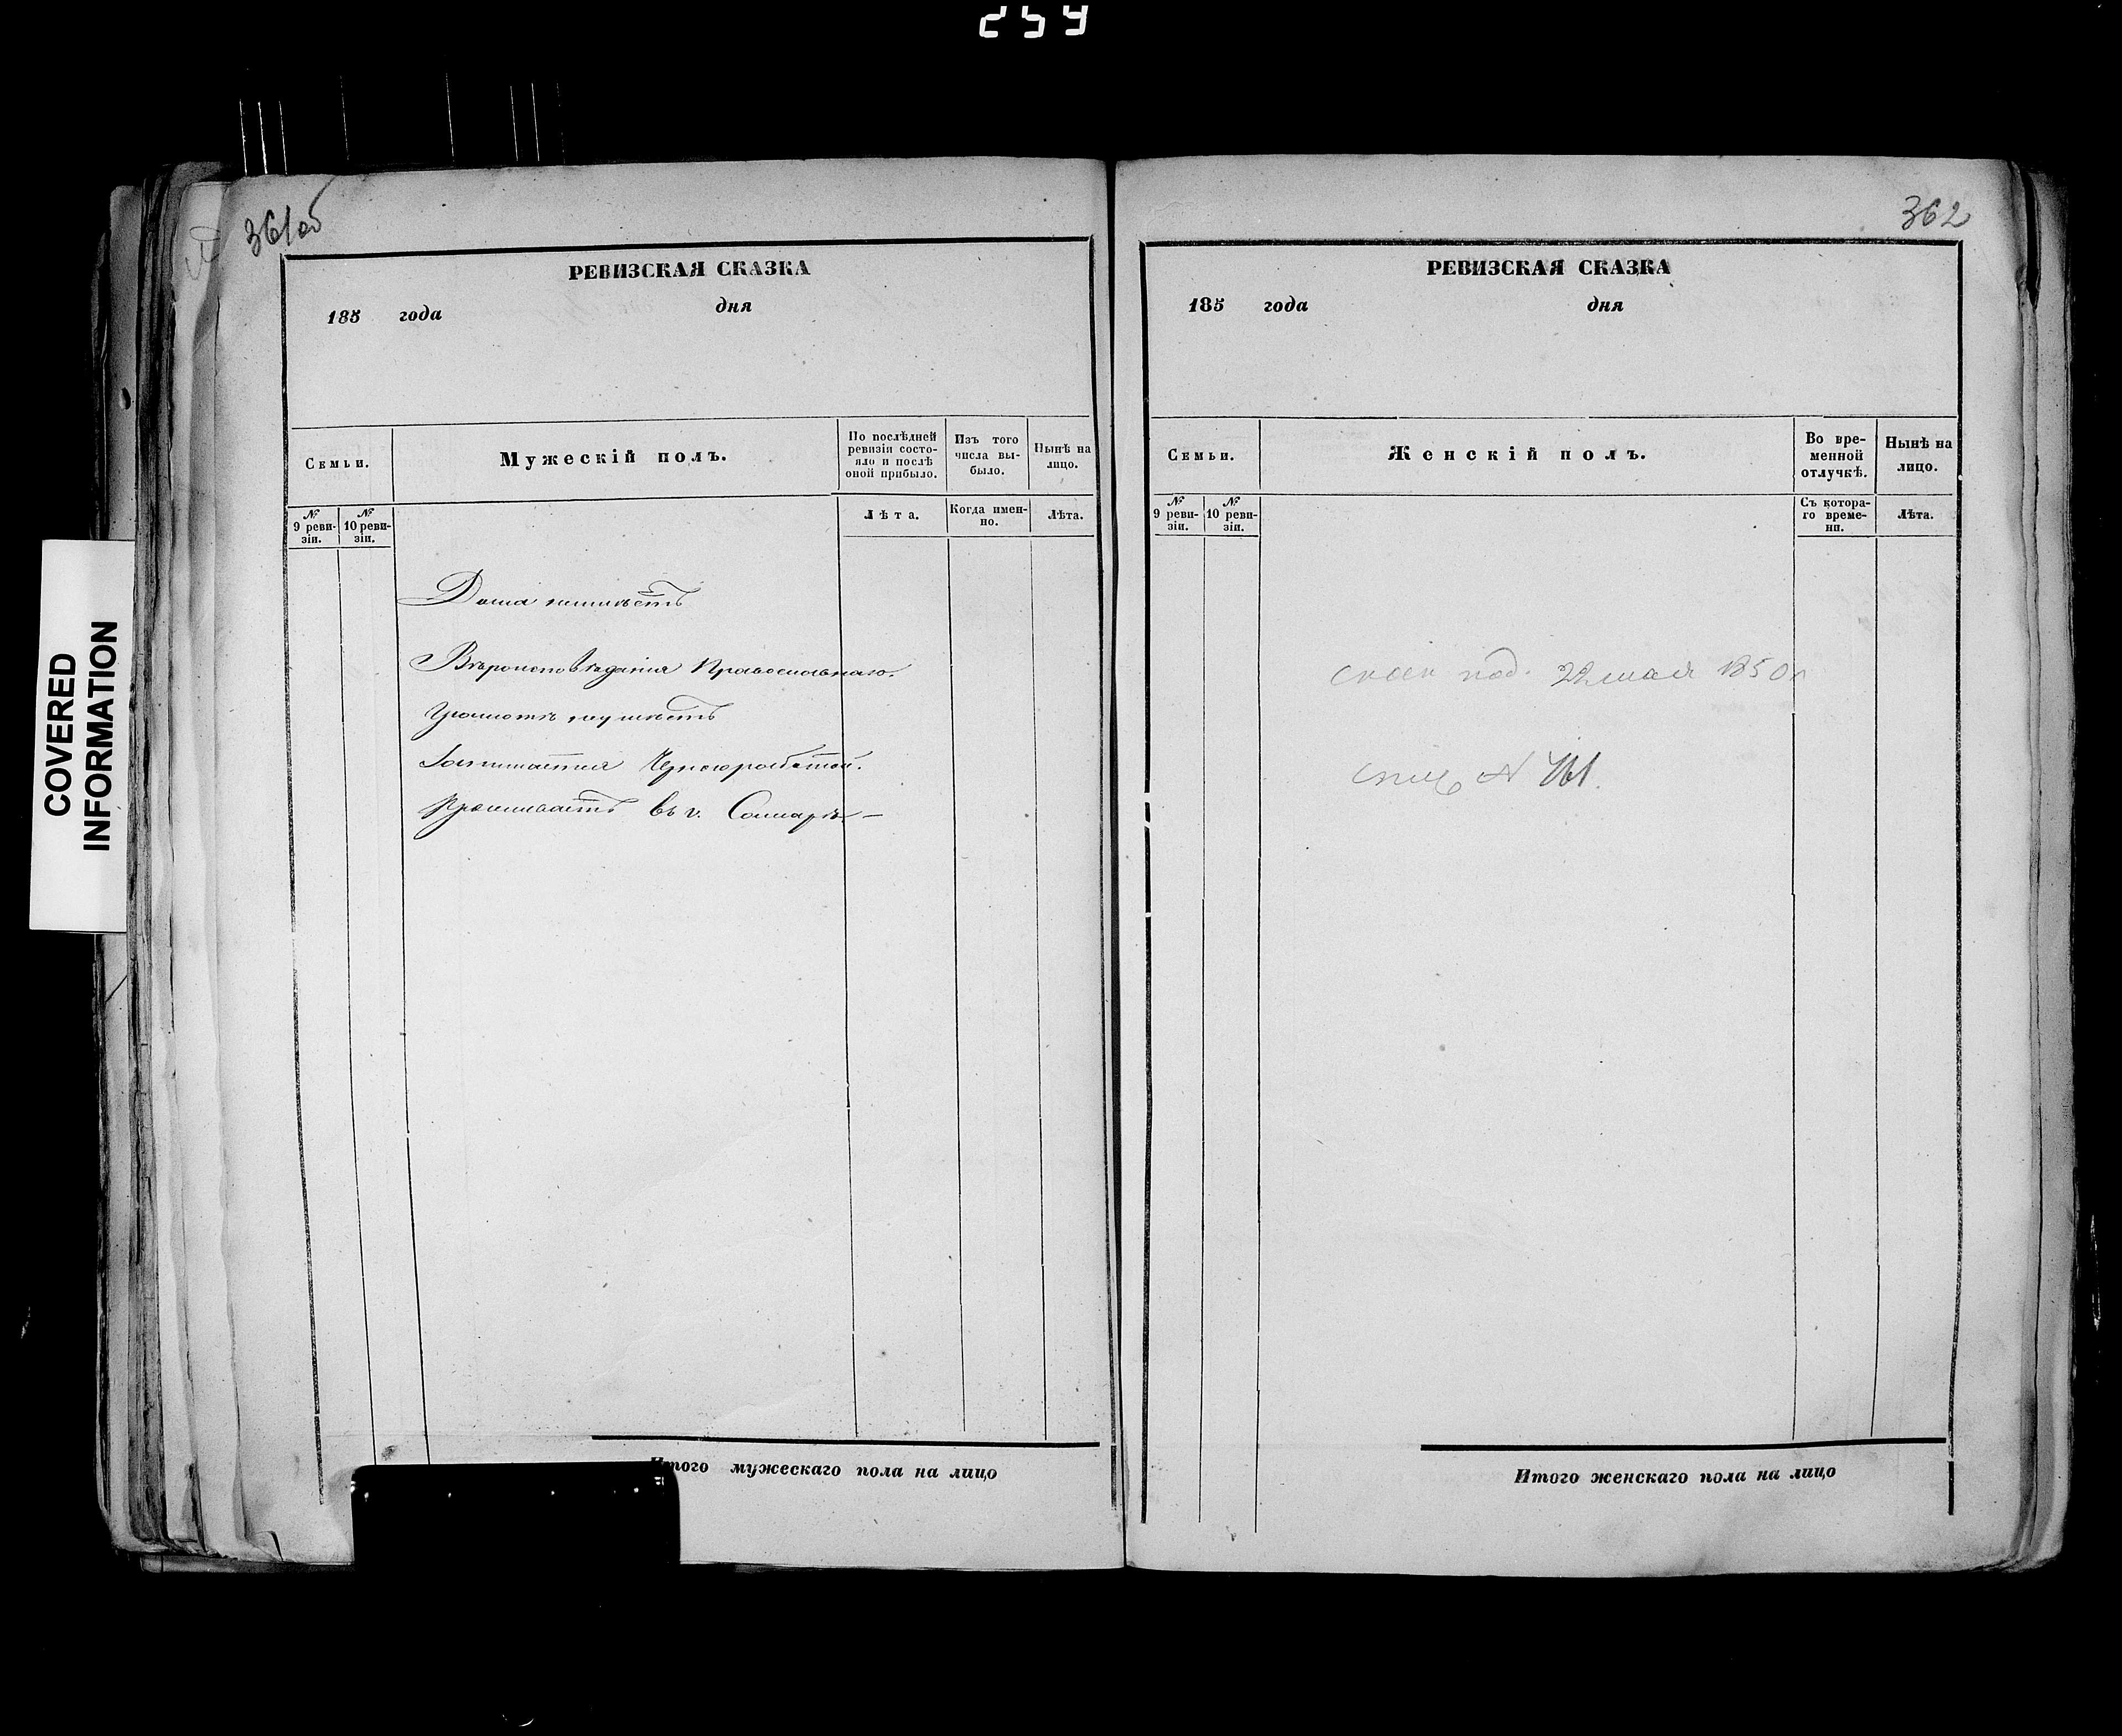 259
361об
РЕВИЗСКАЯ СКАЗКА
185 года дня
Семьи.
Мужескій полъ.
По послѣдней ревизіи состо-
яло и послѣ
оной прибыло.
Изъ того
числа вы-
было.
Нынѣ на
лицо.
№
9 реви-
зіи.
№
10 реви-
зіи.
Лѣта.
Когда имен-
но.
Лѣта.
Дома неимѣетъ
Вѣроисповѣданія Православнаго.
Грамотѣ неумѣетъ
Занимается Черноработой.
Проживаетъ въ г. Самарѣ —
Итого мужескаго пола на лицо
362
РЕВИЗСКАЯ СКАЗКА
185 года дня
Семьи.
Женскій полъ.
Во вре-
менной
отлучкѣ.
Нынѣ на
лицо.
№
9 реви-
зіи.
№
10 реви-
зіи.
Съ котора-
го време-
ни.
Лѣта.
под. 22 мая 1850г
№
Итого женскаго пола на лицо
COVERED
INFORMATION